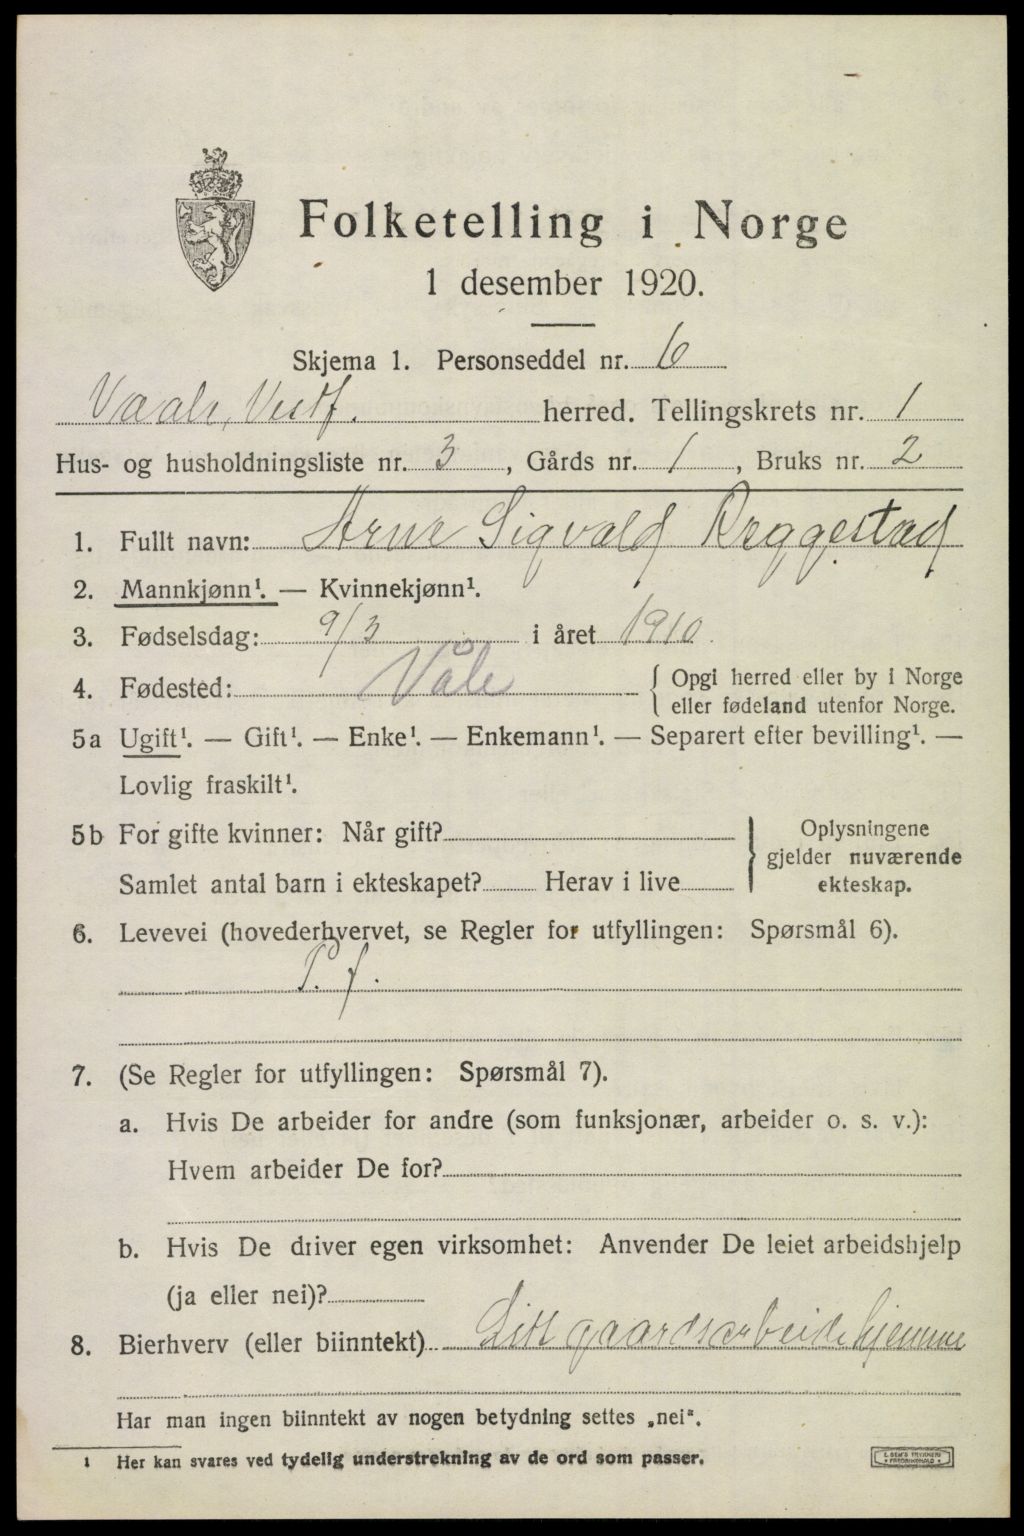 Folketelling i Norge
1 desember 1920.
Skjema 1. Personseddel nr. 6
Vaale, Vestf. herred. Tellingskrets nr. 1
Hus- og husholdningsliste nr. 3, Gårds nr. 1, Bruks nr. 2
1. Fullt navn: Arne Sigvald Reggestad
2. Mannkjønn¹. — Kvinnekjønn¹.
3. Fødselsdag: 9/3 i året 1910.
4. Fødested: Våle { Opgi herred eller by i Norge
eller fødeland utenfor Norge.
5a Ugift¹. — Gift¹. — Enke¹. — Enkemann¹. — Separert efter bevilling¹. —
Lovlig fraskilt¹.
5b For gifte kvinner: Når gift?
Samlet antal barn i ekteskapet? Herav i live
} Oplysningene
gjelder nuværende
ekteskap.
6. Levevei (hovederhvervet, se Regler for utfyllingen: Spørsmål 6).
P. f.
7. (Se Regler for utfyllingen: Spørsmål 7).
a. Hvis De arbeider for andre (som funksjonær, arbeider o. s. v.):
Hvem arbeider De for?
b. Hvis De driver egen virksomhet: Anvender De leiet arbeidshjelp
(ja eller nei)?
8. Bierhverv (eller biinntekt) Litt gaardsarbeide hjemme
Har man ingen biinntekt av nogen betydning settes „nei".
¹ Her kan svares ved tydelig understrekning av de ord som passer.
E. SEM'S TRYKKERI
FREDRIKSHALD